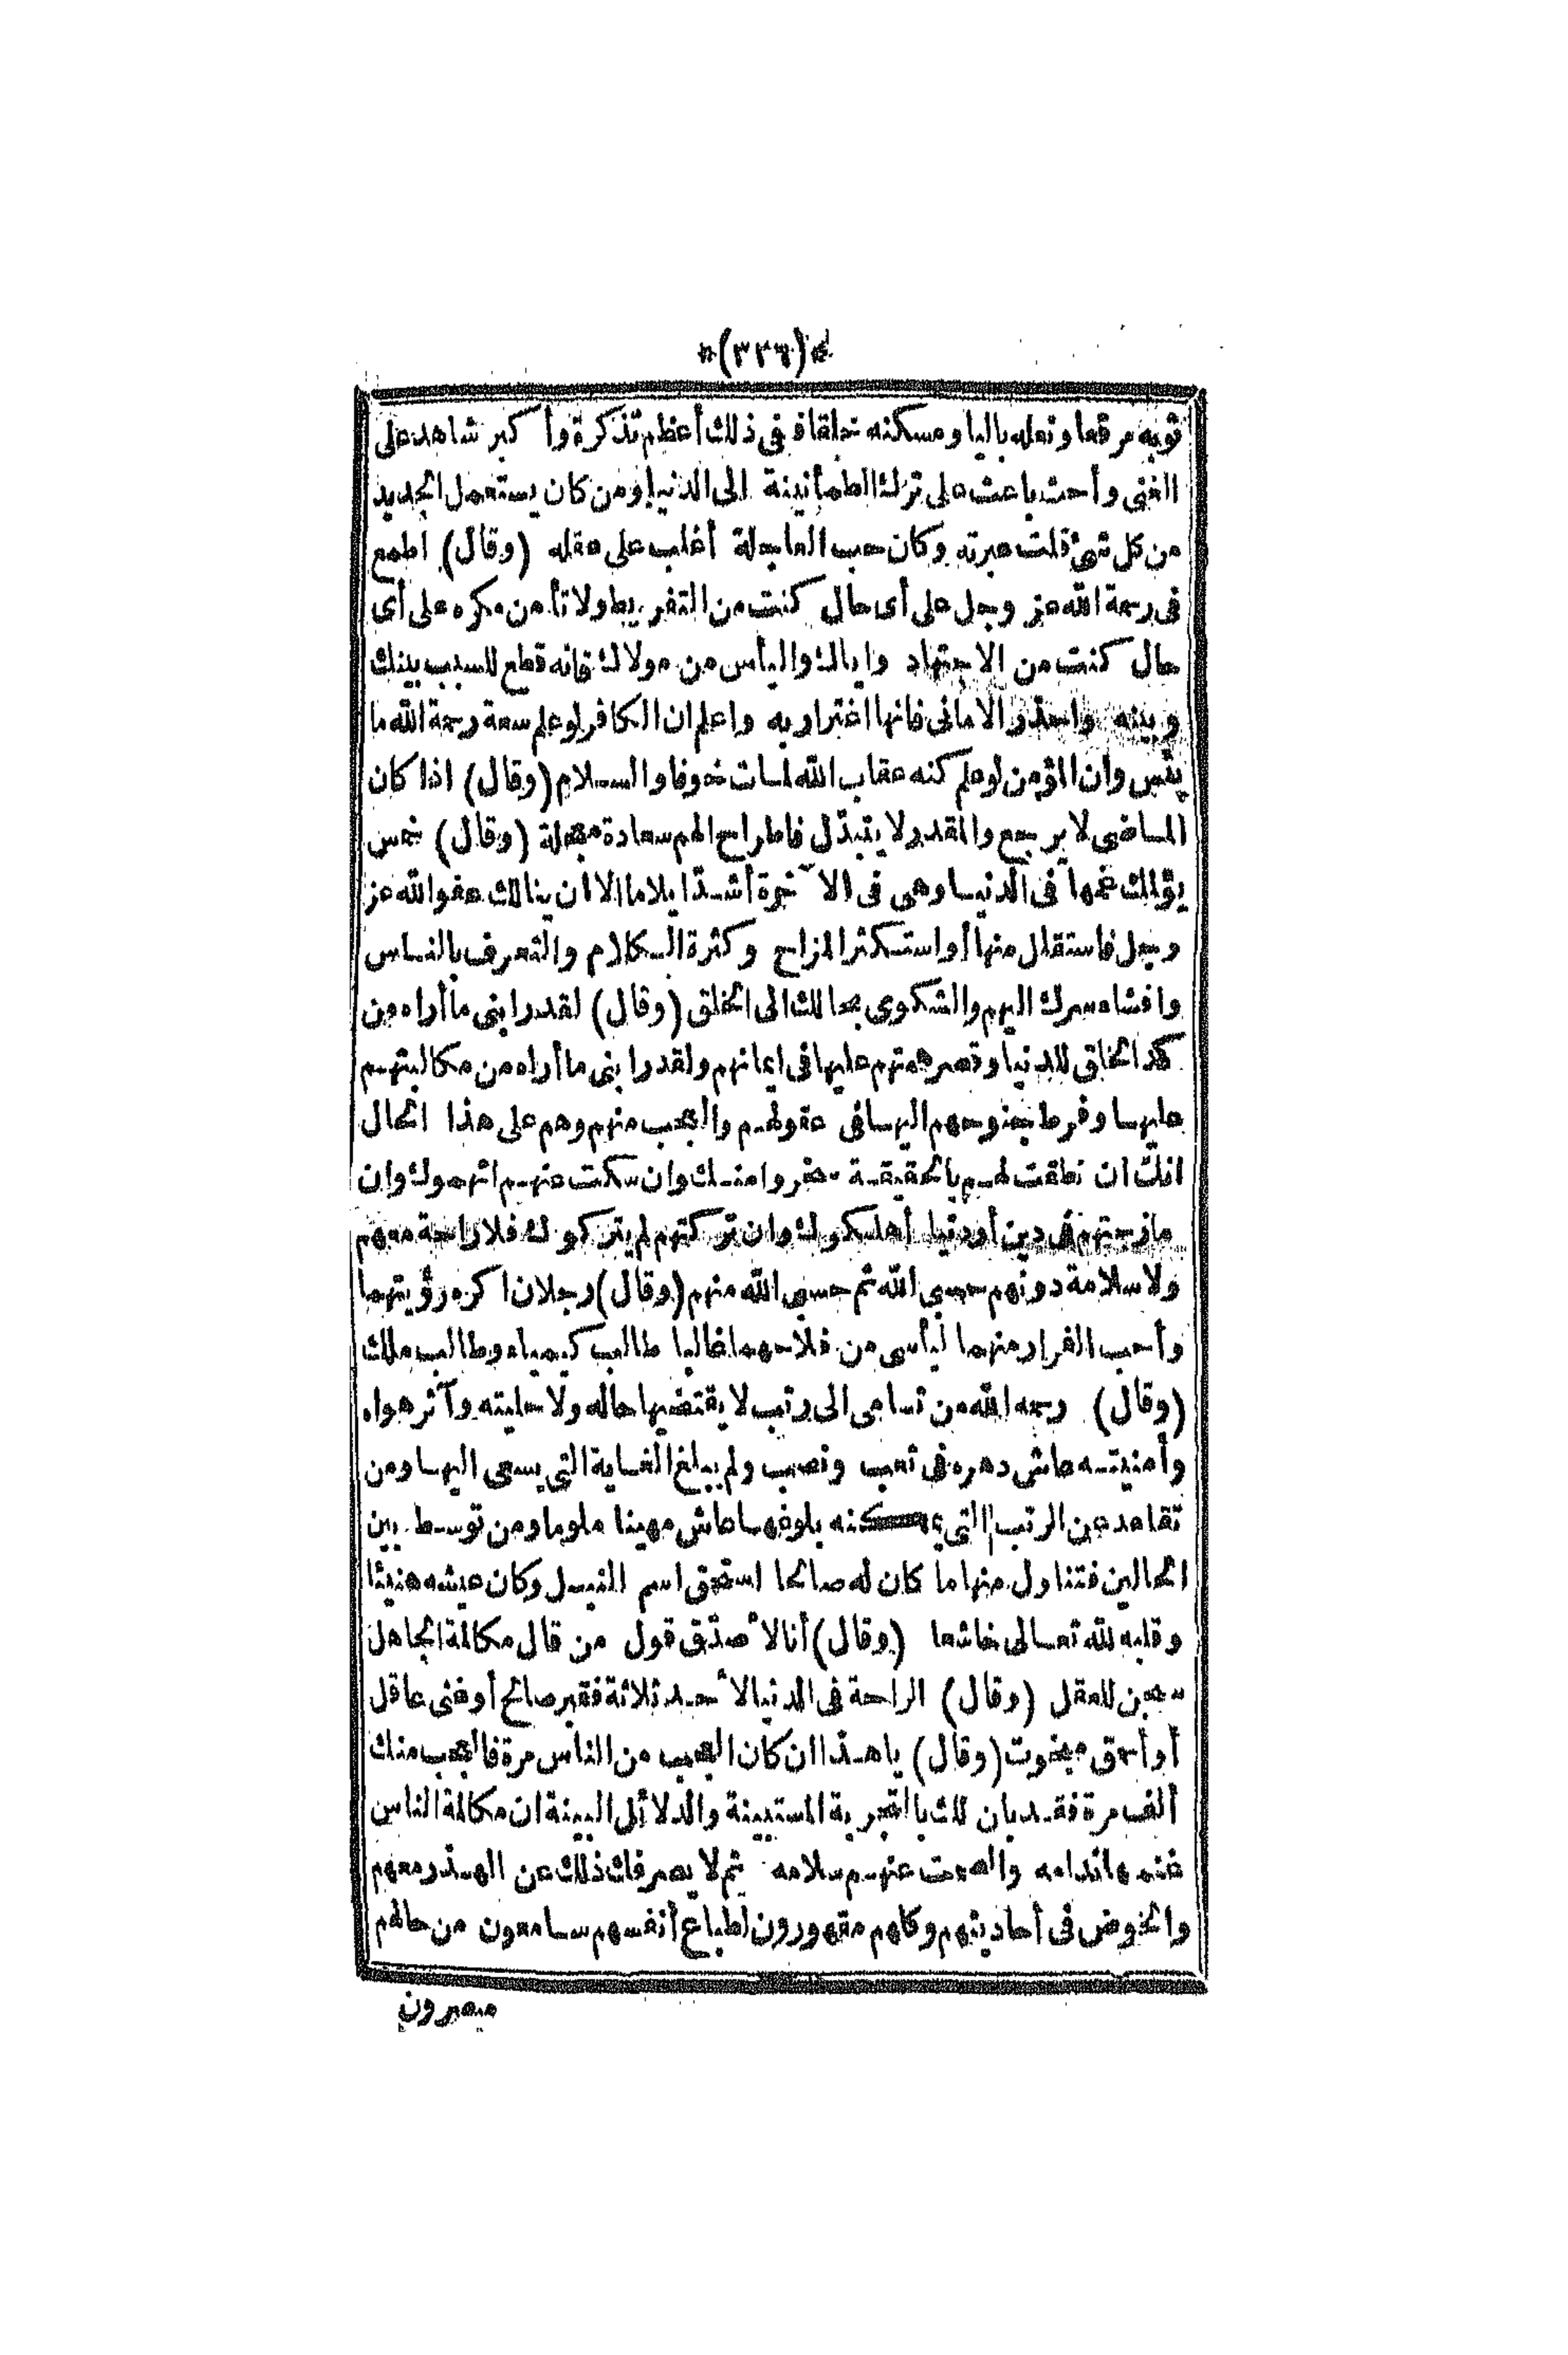 *(٣٣٦)*
ثوبه مرقعا ونعله باليا ومسكنه خلقا ففى ذلك أعظم تذكرة وأكبر شاهد على
الغنى وأحث باعث على ترك الطمأنينة الى الدنيا ومن كان يستعمل الجديد
من كل شئ قلت عبرته وكان حب العاجلة أغلب على عقله (وقال) اطمع
فى رحمة الله عز وجل على أى حال كنت من التفريط ولا تأمن مكره على أى
حال كنت من الاجتهاد واياك واليأس من مولاك فانه قطع للسبب بينك
وبينه واحذر الامانى فانها اغترار به واعلم ان الكافر لو علم سعة رحمة الله ما
يئس وان المؤمن لو علم كنه عقاب الله لمات خوفا والسلام (وقال) اذا كان
الماضى لا يرجع والمقدر لا يتبدّل فاطراح الهم سعادة معجلة (وقال) خمس
يؤلمك غمها فى الدنيا وهى فى الآخرة أشدّ ايلاما الا أن ينالك عفو الله عز
وجل فاستقلل منها أو استكثر المزاح وكثرة الكلام والتعرف بالناس
وافشاء سرك اليهم والشكوى بحالك الى الخلق (وقال) لقد رابنى ما أراه من
كد الخلق للدنيا وقصر همتهم عليها فى ايمانهم ولقد رابنى ما أراه من مكالبتهم
عليها وفرط جنوحهم اليها فى عقولهم والعجب منهم وهم على هذا الحال
انك ان نطقت لهم بالحقيقة سخروا منك وان سكت عنهم اتهموك وان
مازجتهم فى دين أو دنيا أهلكوك وان تركتهم لم يتركوك فلا راحة معهم
ولا سلامة دونهم حسبى الله ثم حسبى الله منهم (وقال) رجلان اكره رؤيتهما
وأحب الفرار منهما ليأسى من فلاحهما غالبا طالب كيمياء وطالب ملك
(وقال) رحمه الله من تسامى الى رتب لا يقتضيها حاله ولا حليته وآثر هواه
وأمنيته عاش دهره فى تعب ونصب ولم يبلغ الغاية التى يسعى اليها ومن
تقاعد عن الرتب التى يمكنه بلوغها عاش مهينا ملوما ومن توسط بين
الحالين فتناول منها ما كان له صالحا استحق اسم النبل وكان عيشه هنيئا
وقلبه لله تعالى خاشعا (وقال) أنا لا أصدّق قول من قال مكالمة الجاهل
سجن للعقل (وقال) الراحة فى الدنيا لأحد ثلاثة فقير صالح أو غنى عاقل
أو أحمق مبخوت (وقال) يا هذا ان كان العجب من الناس مرة فالعجب منك
ألف مرة فقد بان لك بالتجربة المستبينة والدلائل البينة ان مكالمة الناس
غنمها ندامه والصمت عنهم سلامه ثم لا يصرفك ذلك عن الهذر معهم
والخوض فى أحاديثهم وكلهم مقهورون لطباع أنفسهم سامعون من حالهم
مبصرون